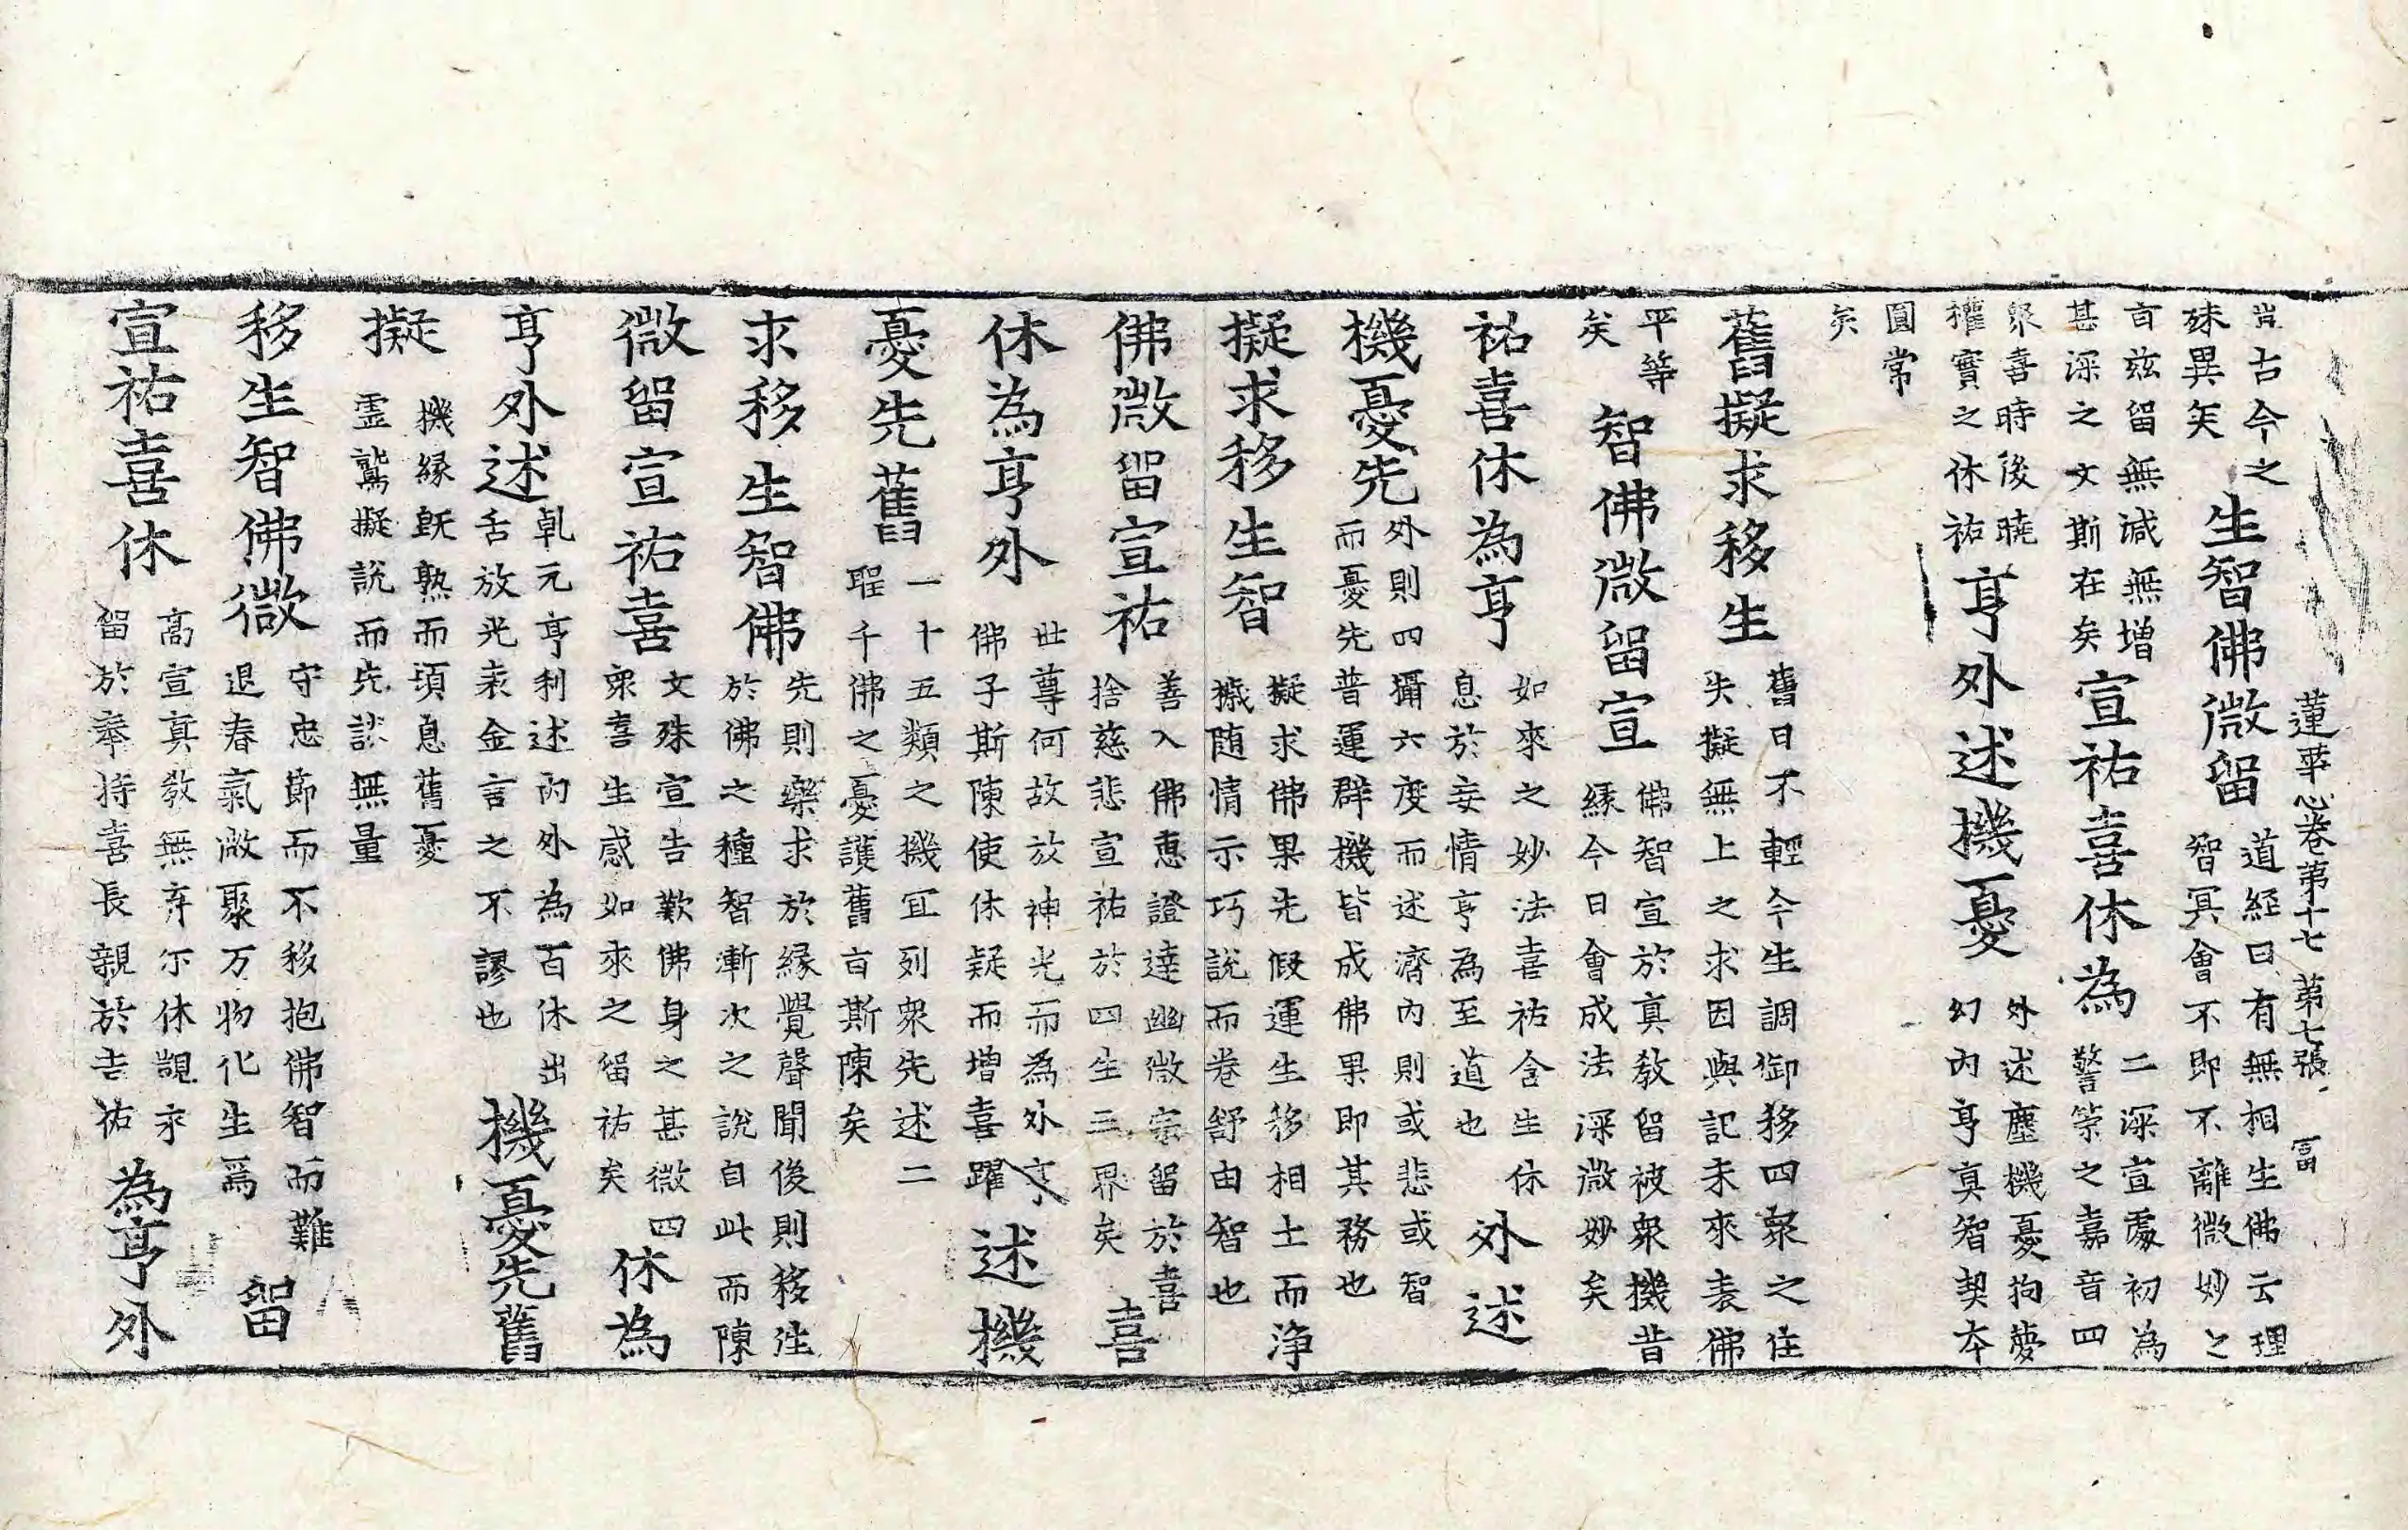 蓮華心卷第十七 第七張 冨
豈古今之殊異矣生智佛微留道経曰有無相生佛云理智冥會不即不離微妙之
言兹留無減無增甚深之文斯在矣宣祐喜休為二深宣處初為警策之嘉音四
衆喜時後曉權實之休祐亨外述機憂外述塵機憂拘夢幻內亨真智契本
圓常矣
舊擬求移生舊日不輕今生調御移四衆之住失擬無上之求因與記未來表佛
平等矣智佛微留宣佛智宣於真教留被衆機昔緣今日會成法深微妙矣
祐喜休為亨如來之妙法喜祐含生休息於妄情亨為至道也外述
機憂先外則四攝六度而述濟內則或悲或智而憂先普運群機皆成佛果即其務也
擬求移生智擬求佛果先假運生移相土而浄攄随情示巧說而卷舒由智也
佛微留宣祐善入佛恵證達幽微宗留於喜捨慈悲宣祐於四生三界矣喜
休為亨外世尊何故放神光而為外亨佛子斯陳使休疑而增喜躍述機
憂先舊一十五類之機冝列衆先述二聖千佛之憂護舊言斯陳矣
求移生智佛先則藥求於緣覺聲聞後則移性於佛之種智漸次之說自此而陳
微留宣祐喜文殊宣告歎佛身之甚微四衆喜生感如來之留祐矣休為
亨外述乹元亨利述內外為百休出舌放光表金言之不謬也機憂先舊
擬機緣既熟而頃息舊憂霊鷲擬說而先談無量
移生智佛微守忠節而不移抱佛智而難退春氣微聚万物化生焉留
宣祐喜休高宣真教無弃尒休覬永留於奉持喜長親於吉祐為亨外